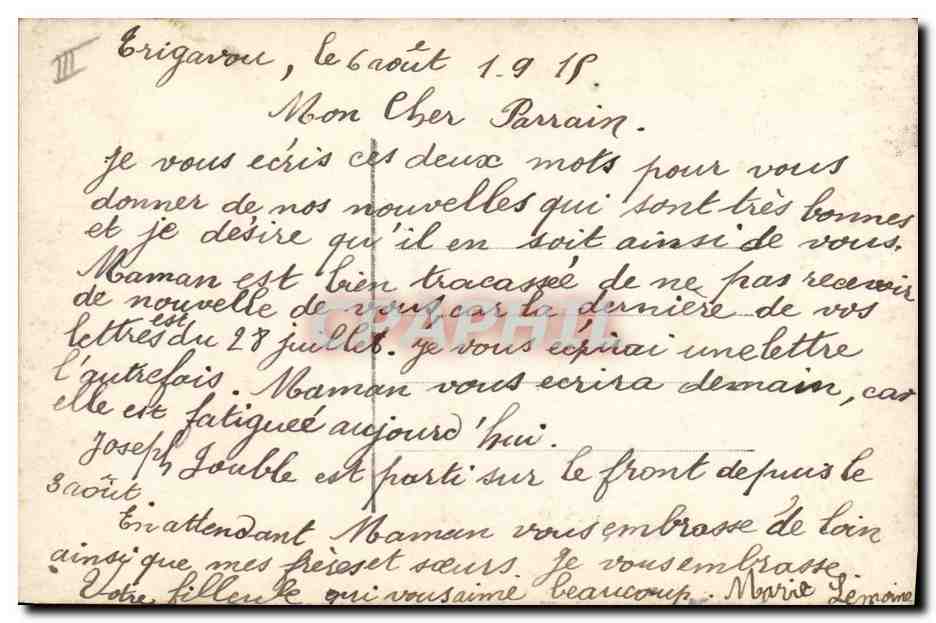 III
Trigavou, le 6 août 1.9 15.
Mon Cher Parrain.
Je vous ecris ces deux mots pour vous
donner de nos nouvelles qui sont très bonnes
et je désire qu'il en soit ainsi de vous.
Maman est bien tracassée de ne pas recevoir
de nouvelle de vous, car la dernière de vos
lettres est du 28 juillet. Je vous ecrivai une lettre
l'autrefois. Maman vous ecrira demain, car
elle est fatigueé aujourd'hui.
Joseph Jouble est parti sur le front depuis le
3 août.
En attendant Maman vous embrasse de loin
ainsi que mes frères et sœurs. Je vous embrasse
Votre filleule qui vous aime beaucoup. Marie Lemoine
CPAPHIL